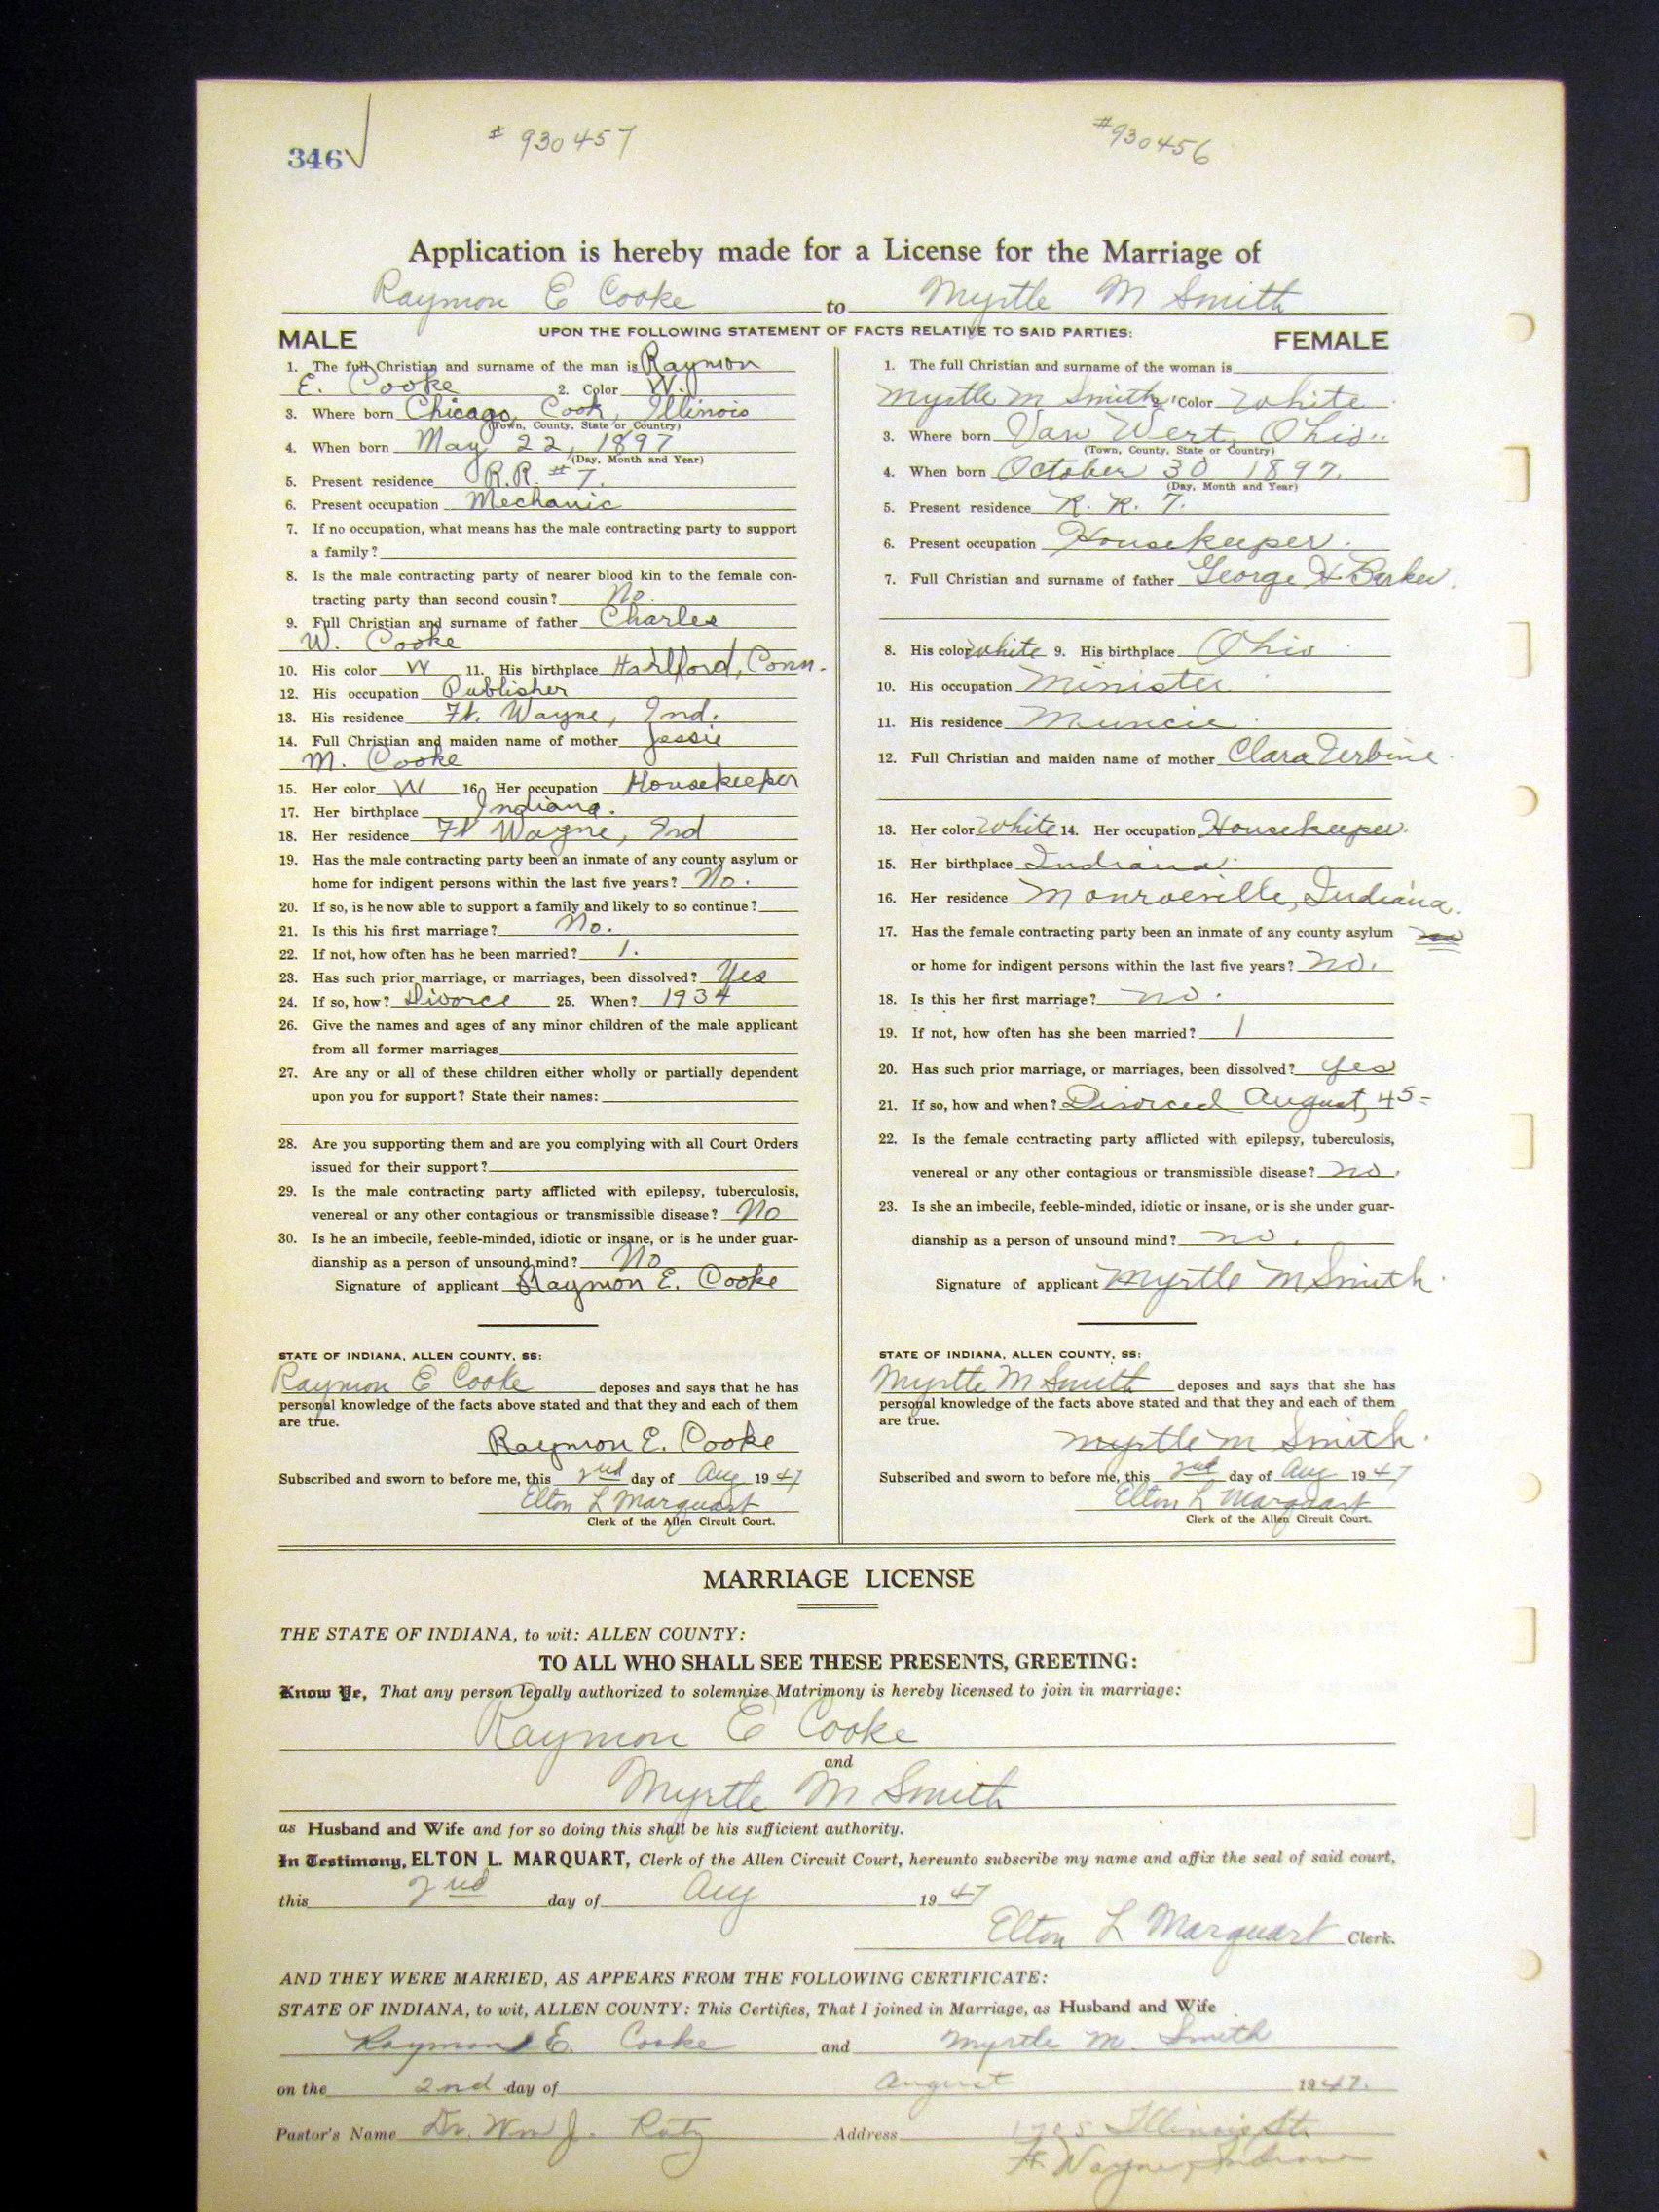 346
# 930457 #930456
Application is hereby made for a License for the Marriage of
Raymon E Cooke to Myrtle M Smith
MALE UPON THE FOLLOWING STATEMENT OF FACTS RELATIVE TO SAID PARTIES: FEMALE
1. The full Christian and surname of the man is Raymon
E. Cooke 2. Color W.
3. Where born Chicago, Cook, Illinois
(Town, County, State or Country)
4. When born May 22, 1897
(Day, Month and Year)
5. Present residence R.R. #7.
6. Present occupation Mechanic
7. If no occupation, what means has the male contracting party to support
a family?
8. Is the male contracting party of nearer blood kin to the female con-
tracting party than second cousin? No.
9. Full Christian and surname of father Charles
W. Cooke
10. His color W 11. His birthplace Hartford, Conn.
12. His occupation Publisher
13. His residence Ft. Wayne, Ind.
14. Full Christian and maiden name of mother Jessie
M. Cooke
15. Her color W 16. Her occupation Housekeeper
17. Her birthplace Indiana.
18. Her residence Ft Wayne, Ind
19. Has the male contracting party been an inmate of any county asylum or
home for indigent persons within the last five years? No.
20. If so, is he now able to support a family and likely to so continue?
21. Is this his first marriage? No.
22. If not, how often has he been married? 1.
23. Has such prior marriage, or marriages, been dissolved? Yes
24. If so, how? Divorce 25. When? 1934
26. Give the names and ages of any minor children of the male applicant
from all former marriages
27. Are any or all of these children either wholly or partially dependent
upon you for support? State their names:
28. Are you supporting them and are you complying with all Court Orders
issued for their support?
29. Is the male contracting party afflicted with epilepsy, tuberculosis,
venereal or any other contagious or transmissible disease? No
30. Is he an imbecile, feeble-minded, idiotic or insane, or is he under guar-
dianship as a person of unsound mind? No
Signature of applicant Raymon E. Cooke
STATE OF INDIANA, ALLEN COUNTY, SS:
Raymon E Cooke deposes and says that he has
personal knowledge of the facts above stated and that they and each of them
are true.
Raymon E. Cooke
Subscribed and sworn to before me, this 2nd day of Aug 1947
Elton L Marquart
Clerk of the Allen Circuit Court.
1. The full Christian and surname of the woman is
Myrtle M Smith 2. Color White
3. Where born Van Wert, Ohio
(Town, County, State or Country)
4. When born October 30 1897.
(Day, Month and Year)
5. Present residence R. R. 7.
6. Present occupation Housekeeper.
7. Full Christian and surname of father George H Barker.
8. His color White 9. His birthplace Ohio
10. His occupation Minister
11. His residence Muncie
12. Full Christian and maiden name of mother Clara
13. Her color White 14. Her occupation Housekeeper.
15. Her birthplace Indiana
16. Her residence Monroeville, Indiana.
17. Has the female contracting party been an inmate of any county asylum
or home for indigent persons within the last five years? No.
18. Is this her first marriage? no.
19. If not, how often has she been married? 1
20. Has such prior marriage, or marriages, been dissolved? yes
21. If so, how and when? Divorced August, 45
22. Is the female contracting party afflicted with epilepsy, tuberculosis,
venereal or any other contagious or transmissible disease? no.
23. Is she an imbecile, feeble-minded, idiotic or insane, or is she under guar-
dianship as a person of unsound mind? no.
Signature of applicant Myrtle M Smith.
STATE OF INDIANA, ALLEN COUNTY, SS:
Myrtle M Smith deposes and says that she has
personal knowledge of the facts above stated and that they and each of them
are true.
Myrtle M Smith.
Subscribed and sworn to before me, this 2nd day of Aug 1947
Elton L Marquart
Clerk of the Allen Circuit Court.
MARRIAGE LICENSE
THE STATE OF INDIANA, to wit: ALLEN COUNTY:
TO ALL WHO SHALL SEE THESE PRESENTS, GREETING:
Know Ye, That any person legally authorized to solemnize Matrimony is hereby licensed to join in marriage:
Raymon E Cooke
and
Myrtle M Smith
as Husband and Wife and for so doing this shall be his sufficient authority.
In Testimony, ELTON L. MARQUART, Clerk of the Allen Circuit Court, hereunto subscribe my name and affix the seal of said court,
this 2nd day of Aug 1947
Elton L Marquart Clerk.
AND THEY WERE MARRIED, AS APPEARS FROM THE FOLLOWING CERTIFICATE:
STATE OF INDIANA, to wit, ALLEN COUNTY: This Certifies, That I joined in Marriage, as Husband and Wife
Raymond E. Cooke and Myrtle M. Smith
on the 2nd day of August 1947.
Pastor's Name Dr. Wm J. Address Illinois St.
Ft. Wayne, Indiana